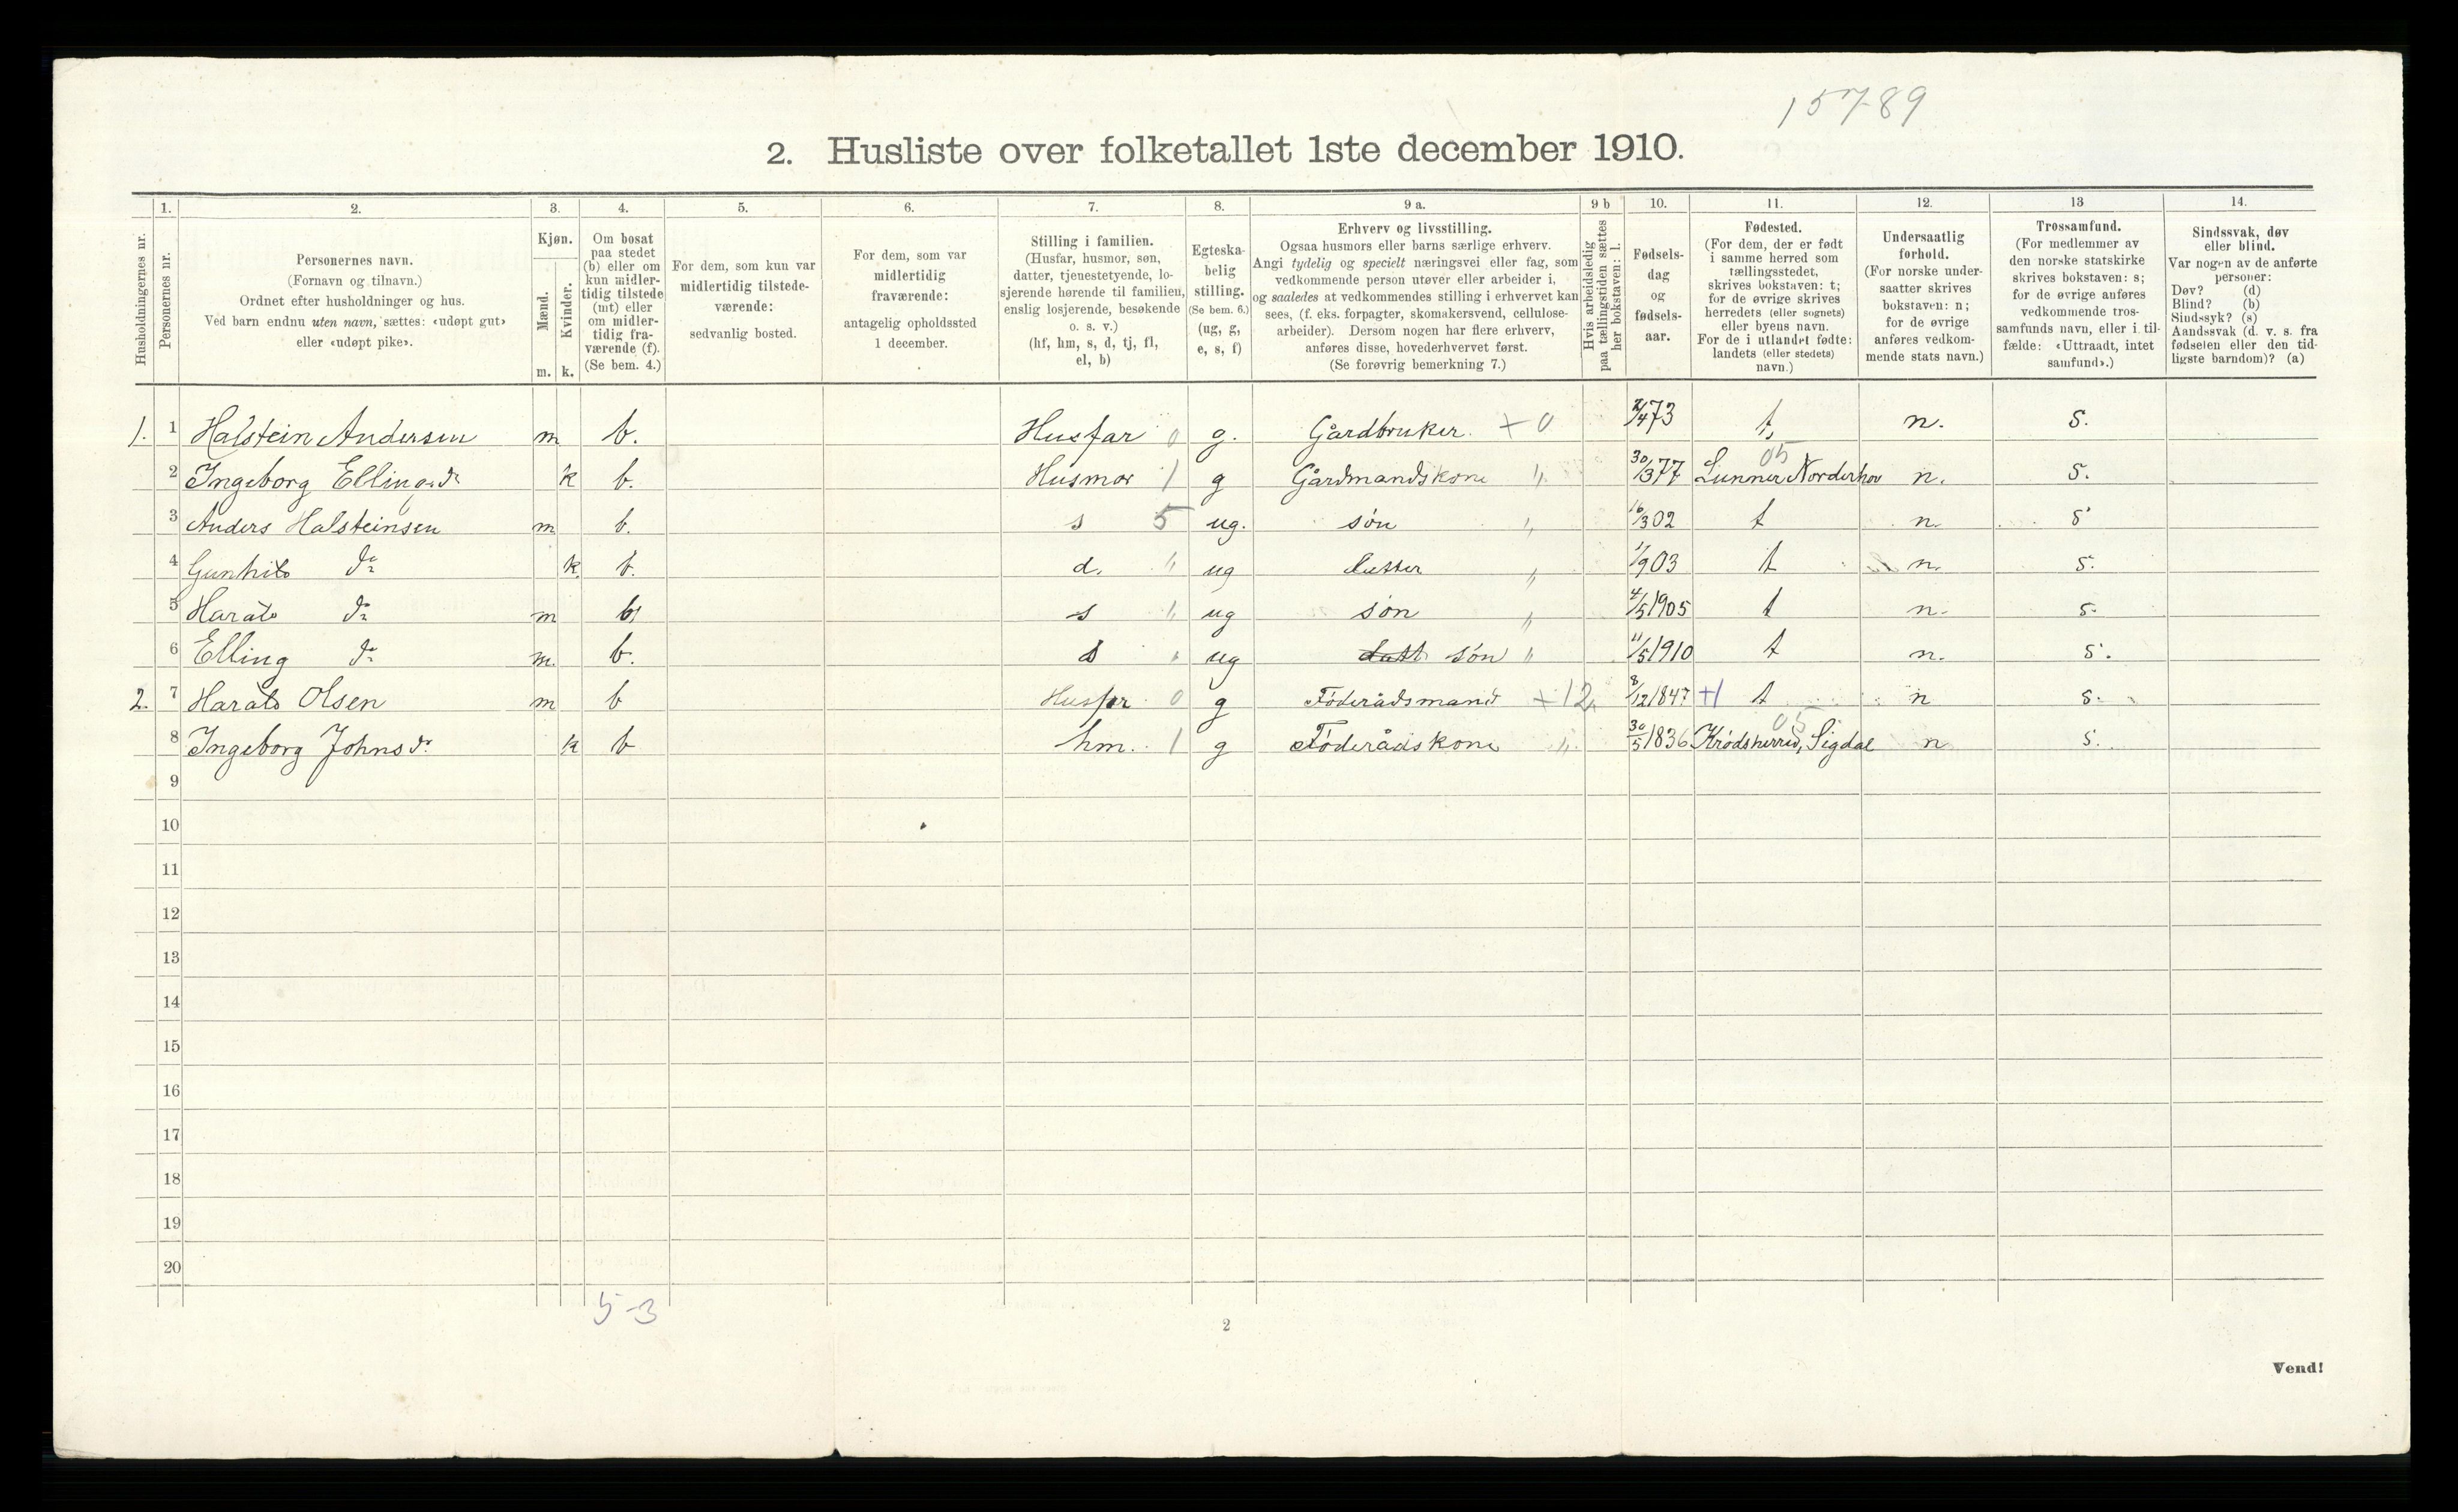 15789
2. Husliste over folketallet 1ste december 1910.
1. 2. 3. 4. 5. 6. 7. 8. 9 a. 9 b 10. 11. 12. 13 14.
Husholdningernes nr.
Personernes nr.
Personernes navn.
(Fornavn og tilnavn.)
Ordnet efter husholdninger og hus.
Ved barn endnu uten navn, sættes: «udøpt gut»
eller «udøpt pike».
Kjøn.
Mænd.
Kvinder.
m. k.
Om bosat
paa stedet
(b) eller om
kun midler-
tidig tilstede
(mt) eller
om midler-
tidig fra-
værende (f).
(Se bem. 4.)
For dem, som kun var
midlertidig tilstede-
værende:
sedvanlig bosted.
For dem, som var
midlertidig
fraværende:
antagelig opholdssted
1 december.
Stilling i familien.
(Husfar, husmor, søn,
datter, tjenestetyende, lo-
sjerende hørende til familien,
enslig losjerende, besøkende
o. s. v.)
(hf, hm, s, d, tj, fl,
el, b)
Egteska-
belig
stilling.
(Se bem. 6.)
(ug, g,
e, s, f)
Erhverv og livsstilling.
Ogsaa husmors eller barns særlige erhverv.
Angi tydelig og specielt næringsvei eller fag, som
vedkommende person utøver eller arbeider i,
og saaledes at vedkommendes stilling i erhvervet kan
sees, (f. eks. forpagter, skomakersvend, cellulose-
arbeider). Dersom nogen har flere erhverv,
anføres disse, hovederhvervet først.
(Se forøvrig bemerkning 7.)
Hvis arbeidsledig
paa tællingstiden sættes
her bokstaven: l.
Fødsels-
dag
og
fødsels-
aar.
Fødested.
(For dem, der er født
i samme herred som
tællingsstedet,
skrives bokstaven: t;
for de øvrige skrives
herredets (eller sognets)
eller byens navn.
For de i utlandet fødte:
landets (eller stedets)
navn.)
Undersaatlig
forhold.
(For norske under-
saatter skrives
bokstaven: n;
for de øvrige
anføres vedkom-
mende stats navn.)
Trossamfund.
(For medlemmer av
den norske statskirke
skrives bokstaven: s;
for de øvrige anføres
vedkommende tros-
samfunds navn, eller i til-
fælde: «Uttraadt, intet
samfund».)
Sindssvak, døv
eller blind.
Var nogen av de anførte
personer:
Døv? (d)
Blind? (b)
Sindssyk? (s)
Aandssvak (d. v. s. fra
fødselen eller den tid-
ligste barndom)? (a)
1. 1 Halstein Andersen m b. Husfar 0 g. Gårdbruker. + 0 2/4 73 t, n. s.
05
2 Ingeborg Ellingsdr k b. Husmor 1 g Gårdmandskone " 30/3 77 Lunner Norderhov n. s.
3 Anders Halsteinsen m b. s 5 ug. søn " 16/3 02 t n. s
4 Gunhild do k. b. d. " ug datter " 1/9 03 t n. s.
5 Harald do m b s " ug søn " 4/5 1905 t n. s.
6 Elling do m. b. s " ug datt. søn " 11/5 1910 t n. s.
2. 7 Harald Olsen m b Husfar 0 g Föderådsmand + 12 8/12 1847 +1 t n s.
05
8 Ingeborg Johnsdr k b hm. 1 g Föderådskone " 30/5 1836 Krödsherred, Sigdal n s.
9
10
11
12
13
14
15
16
17
18
19
20
5-3
2
Vend!